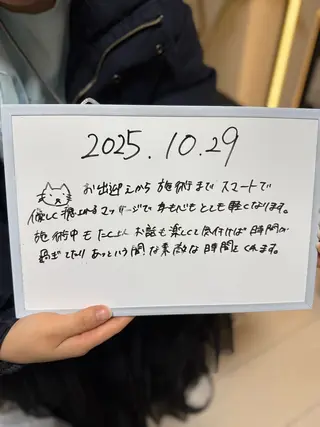 2025.10.29
お出迎えから施術までスマートで
優しく癒されるマッサージで身も心もとても軽くなります。
施術中もたくさんお話も楽しくて気付けば時間が
過ぎてたりあっという間な素敵な時間をくれます。